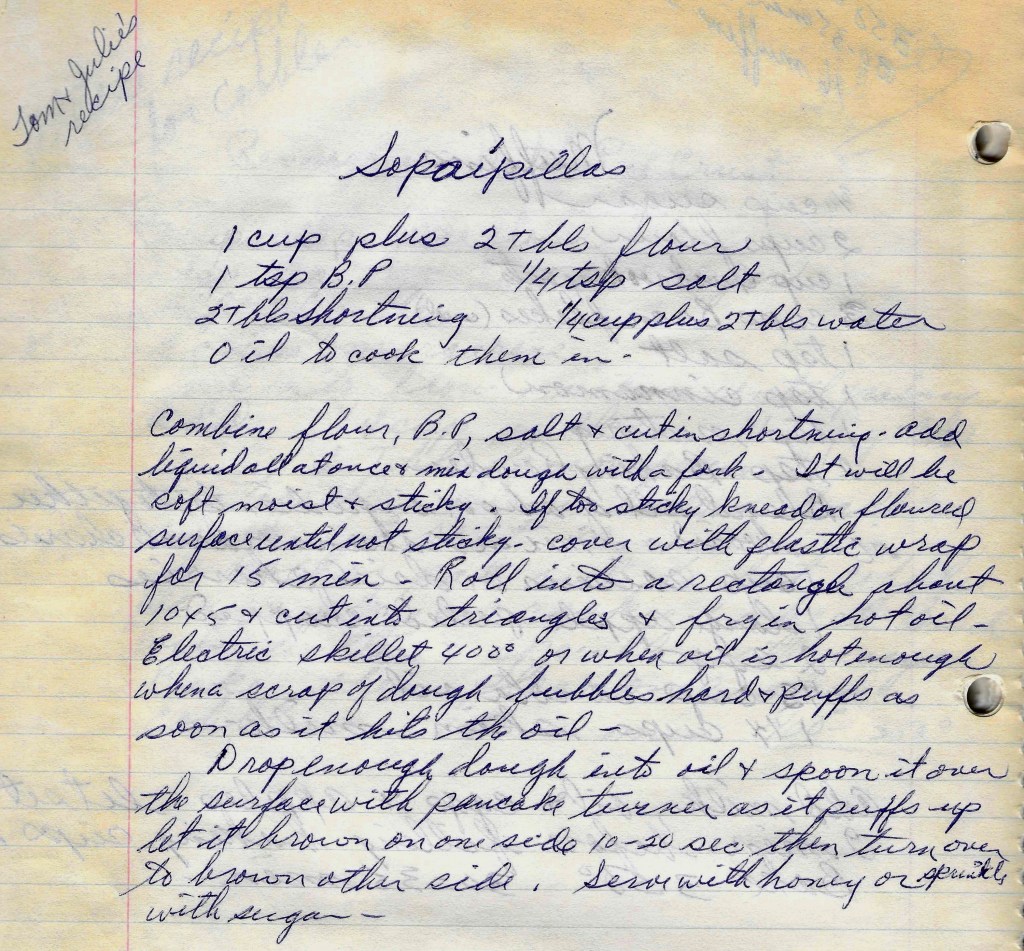 Tom & Julie's
recipe
Sopaipillas
1 cup plus 2 Tbls flour
1 tsp B.P 1/4 tsp salt
2 Tbls Shortning 1/4 cup plus 2 Tbls water
Oil to cook them in.
Combine flour, B.P, salt & cut in shortning. add
liquid all at once & mix dough with a fork. It will be
soft moist & sticky. If too sticky knead on floured
surface until not sticky. cover with plastic wrap
for 15 min. Roll into a rectangle about
10x5 & cut into triangles & fry in hot oil -
Electric skillet 400° or when oil is hot enough
when a scrap of dough bubbles hard & puffs as
soon as it hits the oil -
Drop enough dough into oil & spoon it over
the surface with pancake turner as it puffs up
let it brown on one side 10-20 sec then turn over
to brown other side. Serve with honey or sprinkle
with sugar -